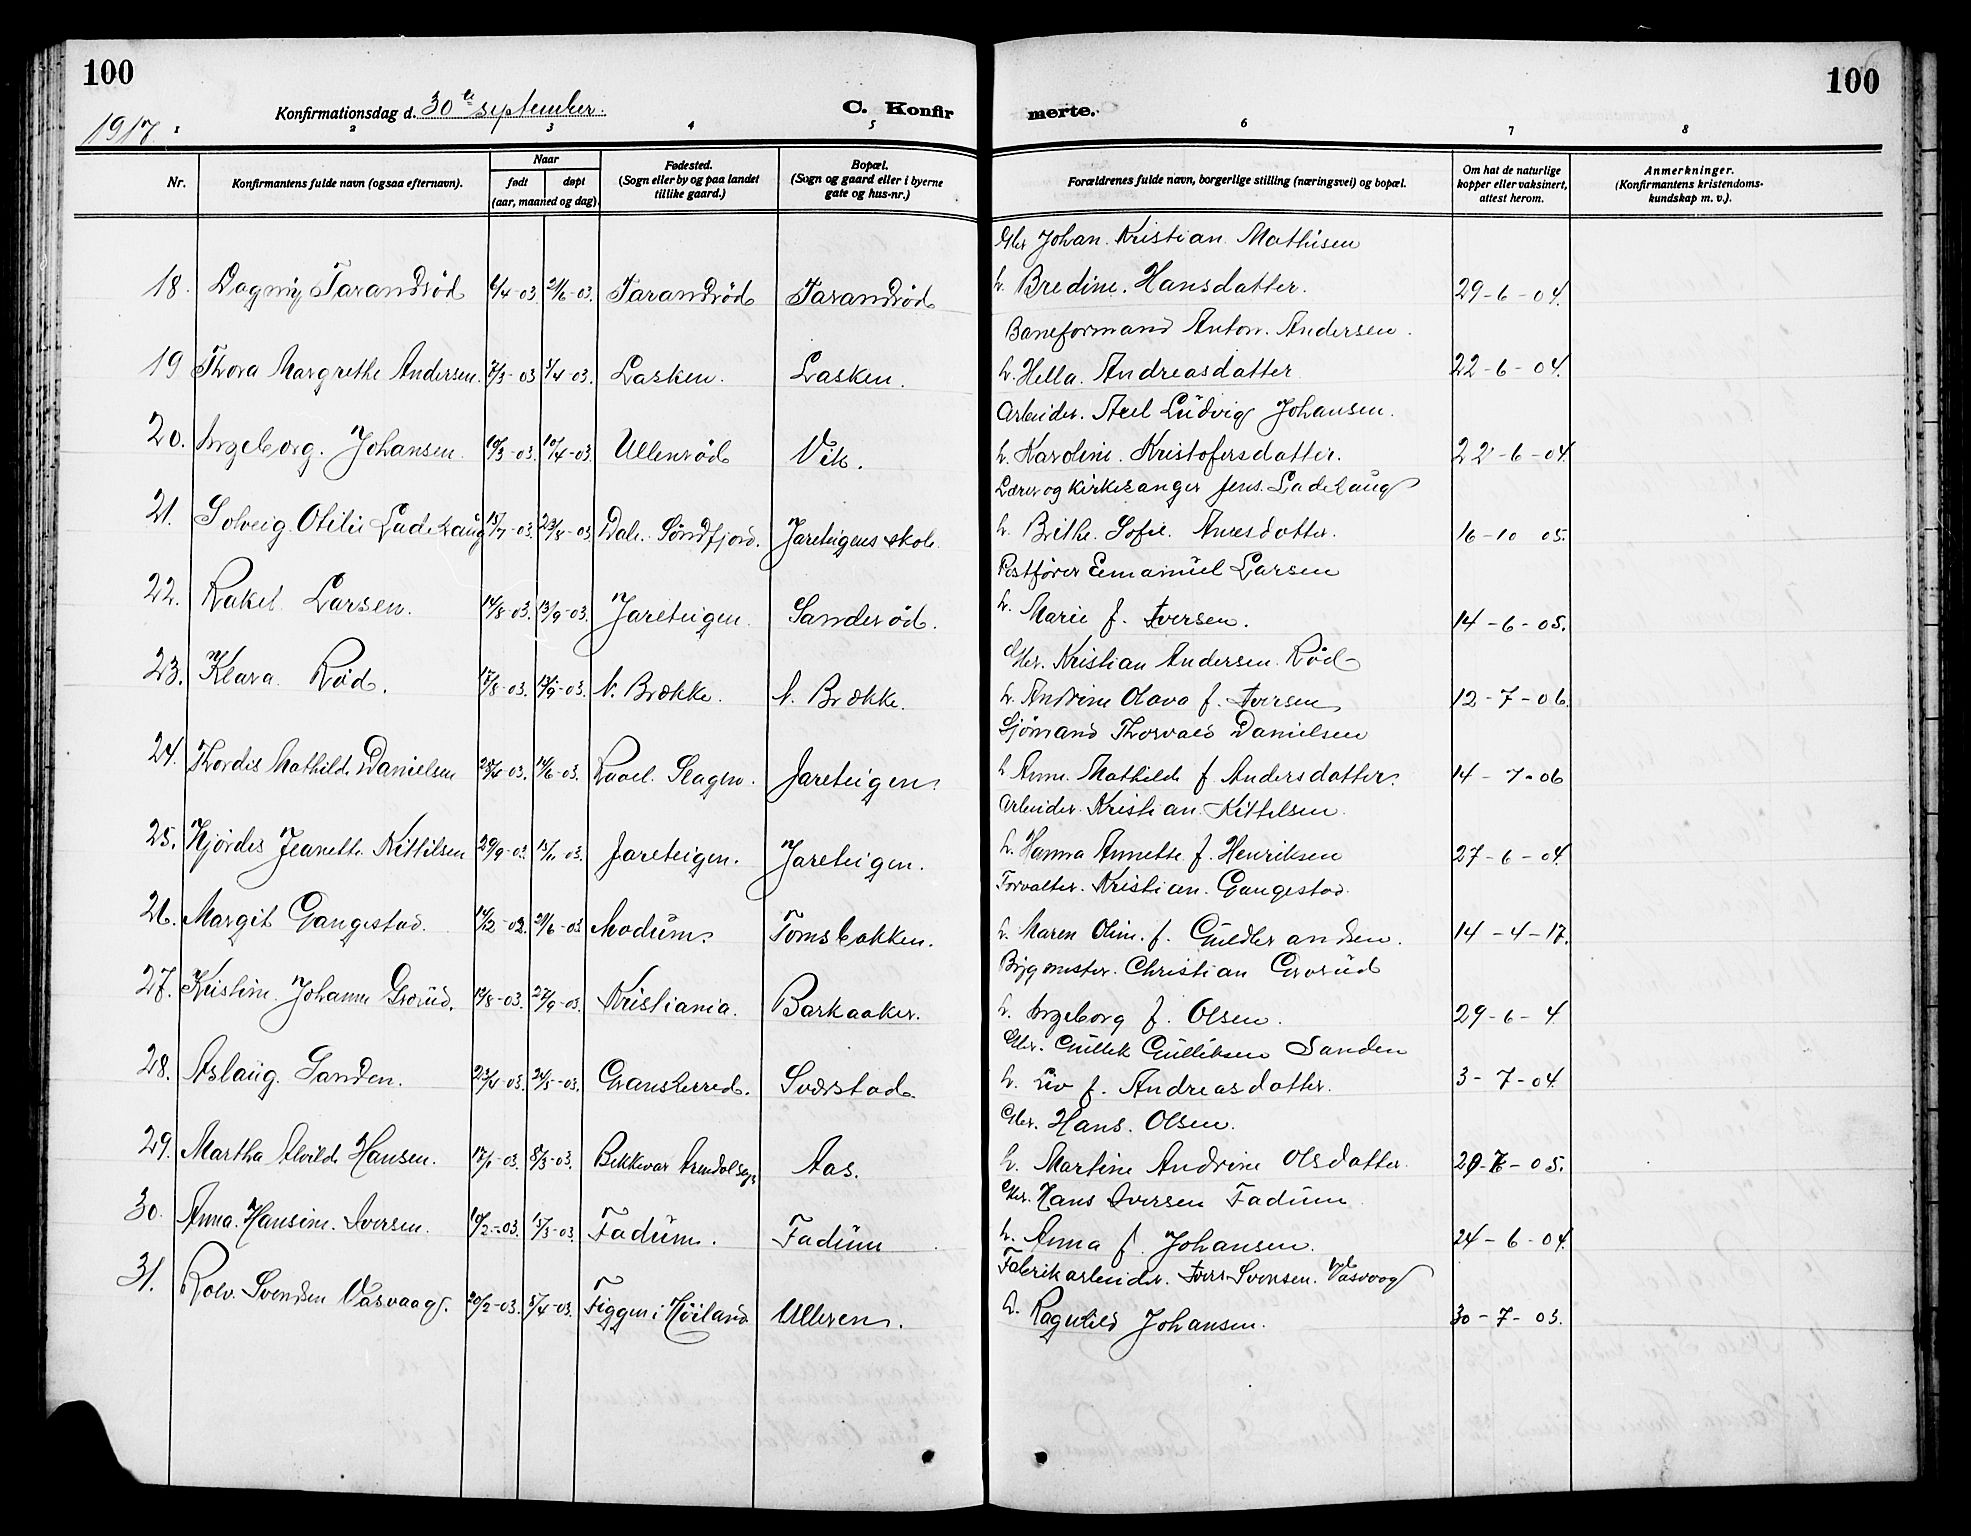 100
1917.
Konfirmationsdag d. 30te september.
C. Konfirmerte.
100
1 2 3 4 5 6 7 8
Nr. Konfirmantens fulde navn (ogsaa efternavn). Naar født døpt (aar, maaned og dag). Fødested. (Sogn eller by og paa landet tillike gaard.) Bopæl. (Sogn og gaard eller i byerne gate og hus-nr.) Forældrenes fulde navn, borgerlige stilling (næringsvei) og bopæl. Om hat de naturlige kopper eller vaksinert, attest herom. Anmerkninger. (Konfirmantens kristendomskundskap m. v.).
Gbr. Johan Kristian Mathisen
18. Dagny Tarandrød 6/4-03. 21/6-03. Tarandrød Tarandrød h. Bredine. Hansdatter. 29-6-04.
Baneformand Anton. Andersen.
19 Thora Margrethe Andersen. 7/3-03 5/4-03. Lasken. Lasken. h. Hella. Andreasdatter 22-6-04.
Arbeider. Axel Ludvig Johansen.
20. Ingeborg. Johansen. 10/3-03. 10/4-03. Ullenrød Vik. h. Karoline. Kristofersdatter. 22-6-04.
Lærer og kirkesanger Jens. Ladehaug
21. Solveig. Otilie Ladehaug 15/7-03. 23/8-03. Dale. Søndfjord. Jareteigens skole. h. Brithe. Sofie. 16-10 05.
Postfører Emanuel Larsen
22. Rakel Larsen. 14/8-03. 13/9-03. Jareteigen. Sanderød. h. Marie f. Iversen. 14-6-05.
Gbr. Kristian Andersen. Rød
23. Klara Rød. 17/8-03. 13/9-03. N. Brække. N. Brække. h. Andrine Olava f. Iversen 12-7-06.
Sjømand Thorvald Danielsen
24. Thordis Mathilde Danielsen 28/4-03. 14/6-03. Slagen. Jareteigen. h Anne. Mathilde f. Andersdatter. 14-7-06
Arbeider. Kristian. Kittelsen.
25. Hjørdis Jeanette Kittilsen 29/9-03. 15/11 03. Jareteigen. Jareteigen. h. Hanna Annette f. Henriksen 27-6-04.
Forvalter. Kristian. Gangestad.
26. Margit Gangestad. 14/12-02. 21/6-03. Modum. Tomsbakken. h. Maren Oline. f. Guldbrandsen. 14-4-17.
Bygmester. Christian Grorud
27. Kristine Johanne Grorud. 12/8-03. 27/9-03. Kristiania. Barkaaker. h. Ingeborg f. Olsen. 29-6-4
Gbr. Gullek Gulliksen Sanden
28. Aslaug. Sanden. 23/4-03. 21/5-03. Gransherred. Sværstad. h. Liv f. Andreasdatter. 3-7-04.
Gbr. Hans. Olsen.
29. Martha Alvilde Hansen. 17/1-03. 8/3-03. Aas. h. Martine Andrine Olsdatter. -05.
Gbr. Hans Iversen Fadum
30. Anna. Hansine. Iversen. 10/2-03. 15/3-03. Fadum. Fadum h. Anna f. Johansen. 24-6-04.
Fabrikarbeider. Iver Svensen. Vasvaag
31. Rolv. Svendsen Vasvaag. 20/2-03. 5/4-03. Figgen i Høiland Ulleren. h. Ragnhild Johansen. 30-7-03.